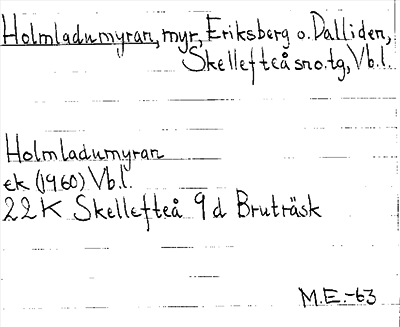 Holmladumyran, myr, Eriksberg o. Dalliden,
Skellefteå sno.tg, Vb.l.
Holmladumyran
ek (1960) Vb.l.
22K Skellefteå 9d Bruträsk
M.E.-63